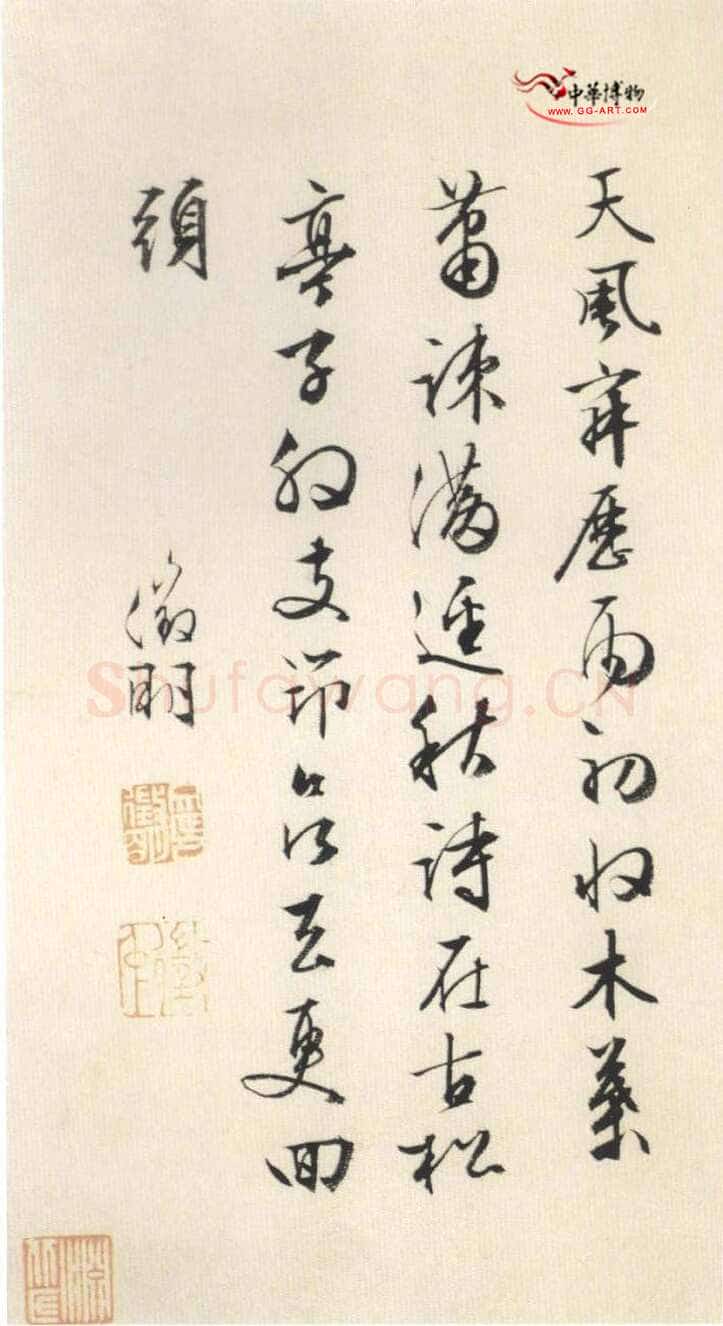 中華博物
WWW.GG-ART.COM
天風寂歷雨初收木葉
蕭疎滿逕秋詩在古松
亭子支筇欲去更回
頭
徵明
Shufawang.CN